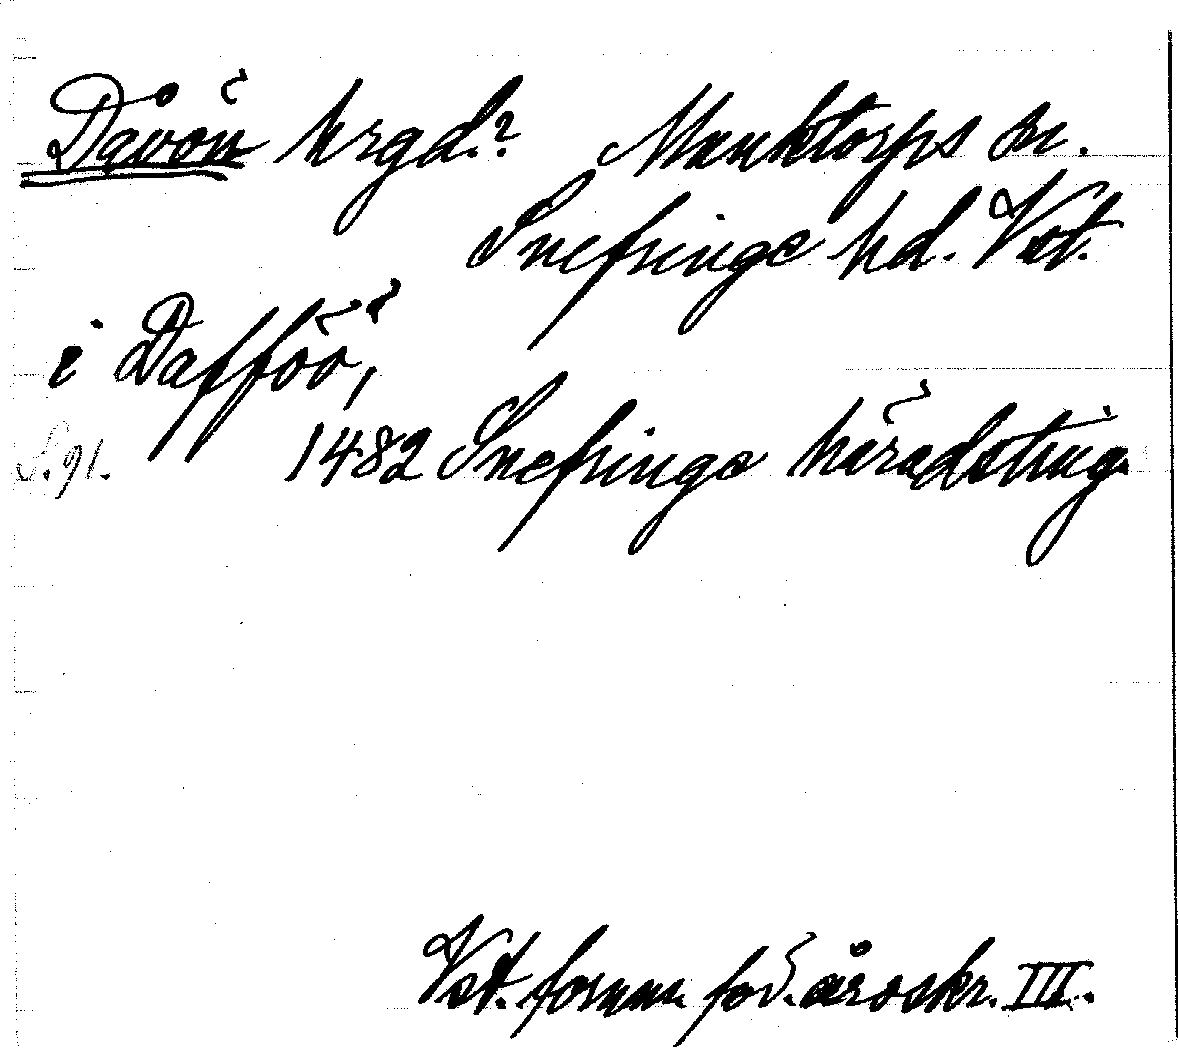 Dåvön hrgd.? Munktorps sn.
Snefringe hd. Vst.
i Dafföö,
S. 91. 1482 Snefringe häradsting.
Vst. fornm. för. årsskr. III.